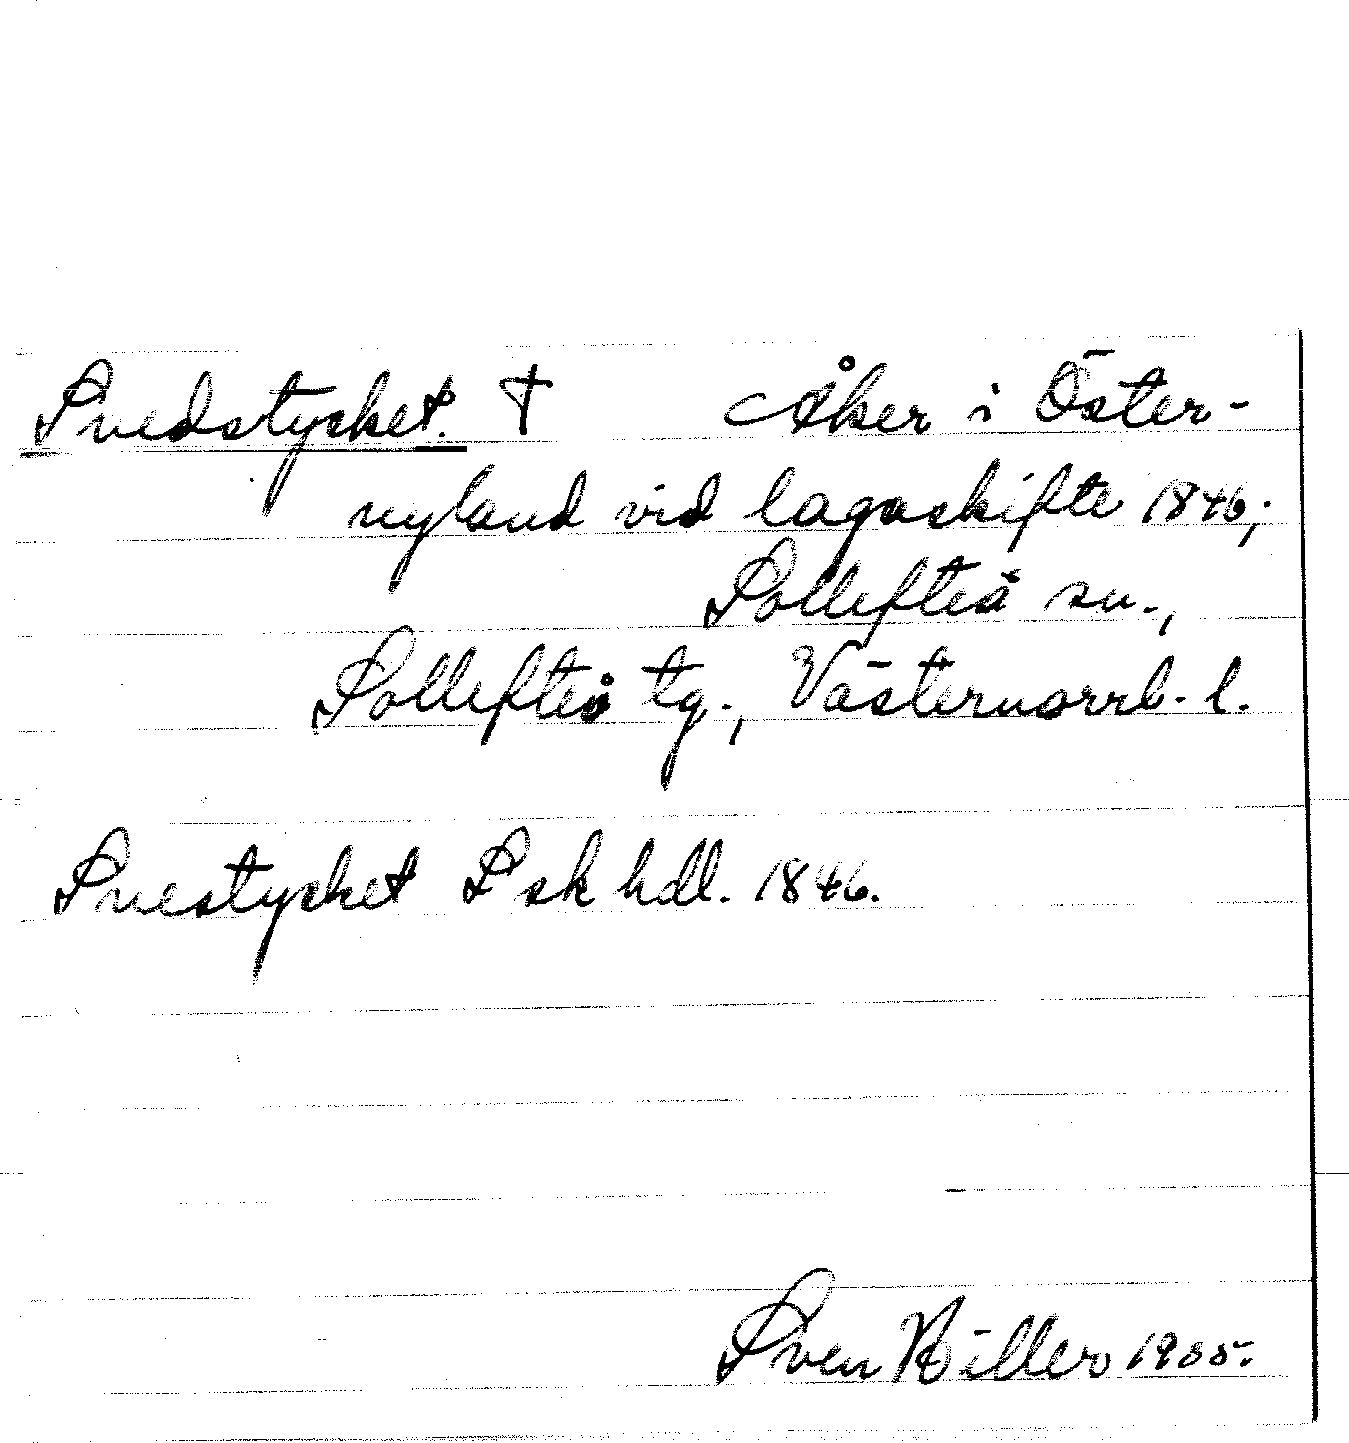 Svedstycket. † Åker i Öster-
nyland vid lagaskifte 1846;
Sollefteå sn.,
Sollefteå tg., Västernorrl. l.
Svestycket L sk hdl. 1846.
Sven Hiller 1935.